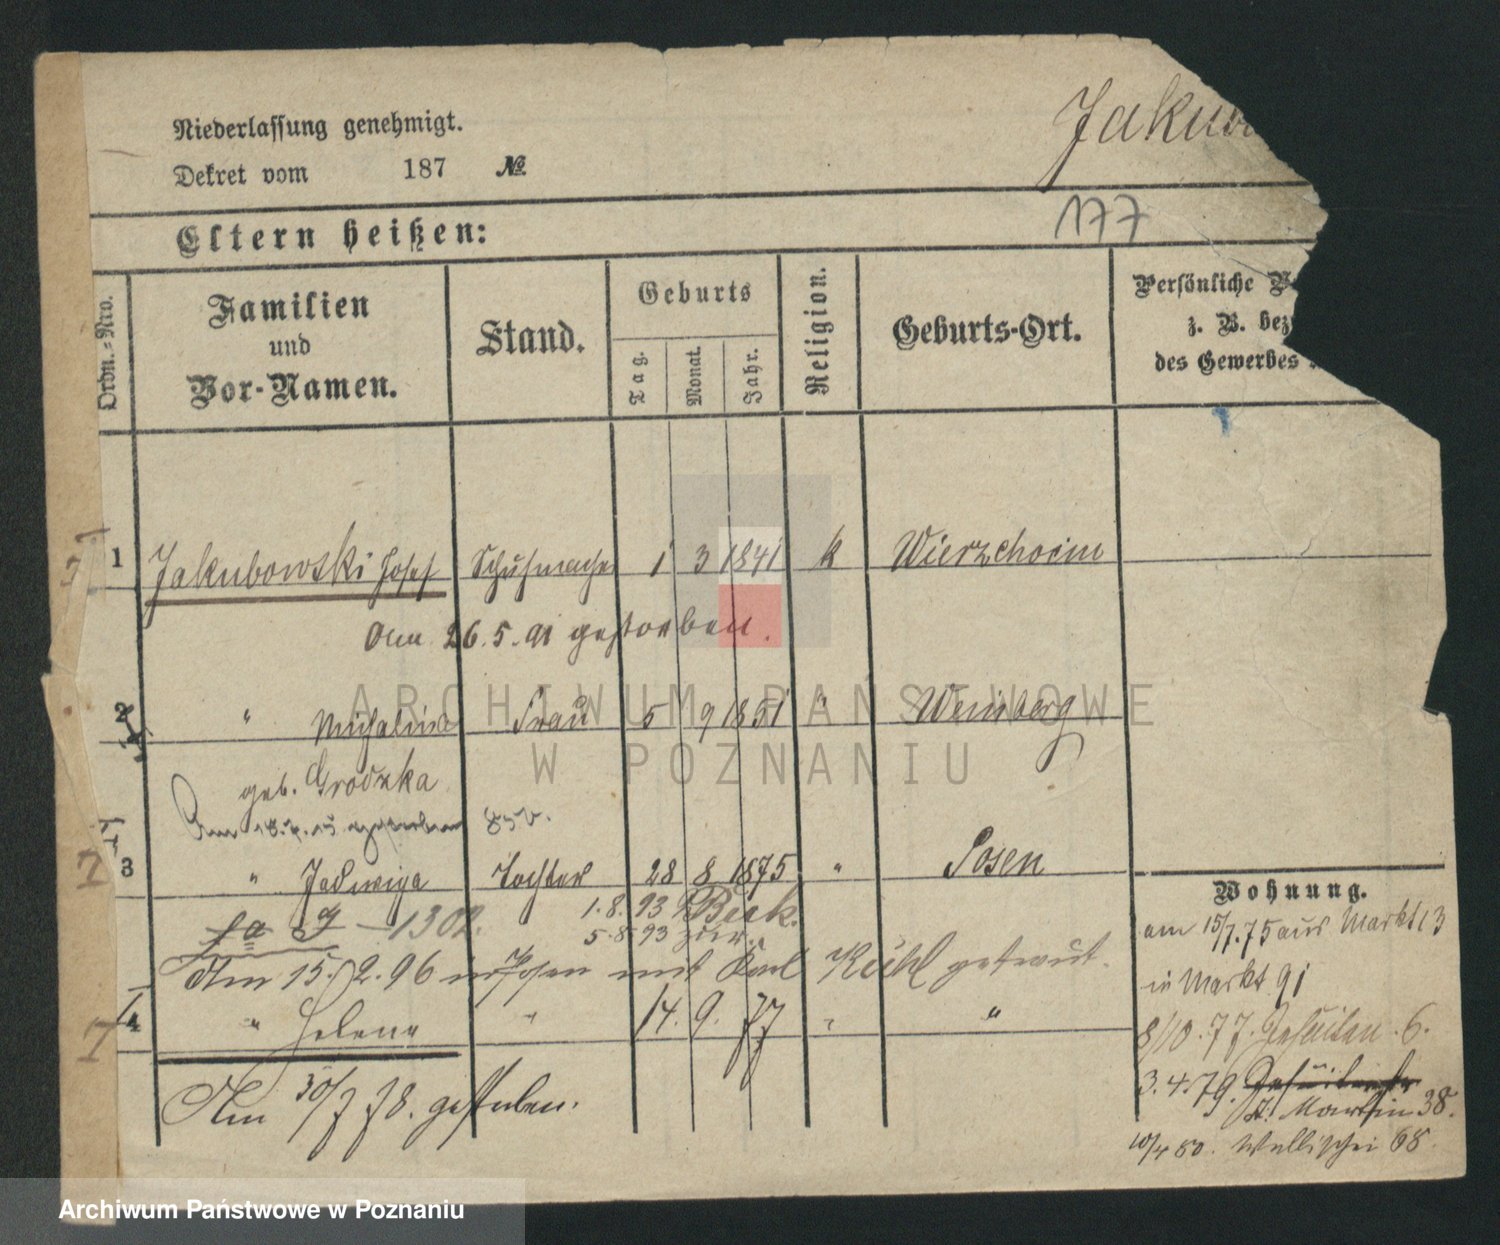 Niederlassung genehmigt.
Dekret vom 187 №
Jakub
177
Eltern heißen:
Ordn.-Nro.
Familien
und
Vor-Namen.
Stand.
Geburts
Tag.
Monat.
Jahr.
Religion.
Geburts-Ort.
Persönliche
z. B. bez
des Gewerbes
1 Jakubowski Josef Schuhmacher 1 3 1841 k Wierzchocin
Am 26.5.91 gestorben.
2 " Michalina Frau 5 9 1851 " Weinberg
geb. Grodzka
Am gestorben
3 " Jadwiga Tochter 28 8 1875 " Posen
1302.
1.8.93 Beek.
5.8.93 zur.
Am 15./2.96 in Posen mit Karl Kühl getraut.
4 " Helena " 14. 9. 77 " "
Am 30/7 78. gestorben.
Wohnung.
am 15/7.75 aus Markt 13
in Markt 91
8/10.77. Jesuiten. 6.
3.4.79. Jesuitenstr
St. Martin 38.
10/4 80. Wallischei 68.
ARCHIWUM PAŃSTWOWE
W POZNANIU
Archiwum Państwowe w Poznaniu